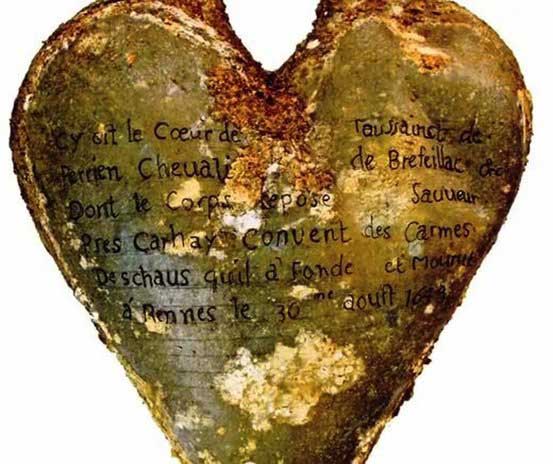 Cy Git le Cœur de Toussainct de
Perrien Cheuali de Brefeillac
Dont le Corps Repose Sauueur
Pres Carhay Convent des Carmes
Deschaus quil à Fonde et Mourut
à Rennes le 30me aoust